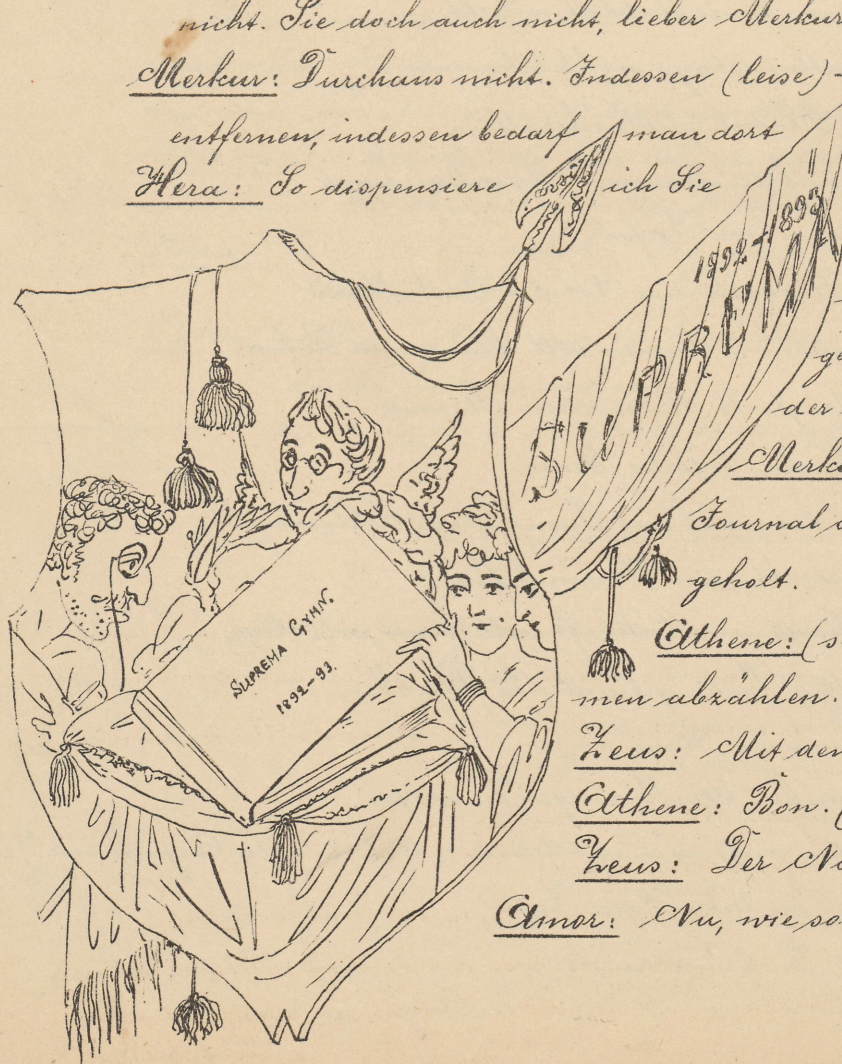 nicht. Sie doch auch nicht, lieber Merkur
Merkur: Durchaus nicht. Indessen (leise) -
entfernen, indessen bedarf man dort
Hera: So dispensiere ich Sie
1892-1893
SUPREMA
der
Merku
Journal
geholt.
Athene: (s
men abzählen.
Zeus: Mit den
Athene: Bon. (
Zeus: Der No
Amor: Nu, wie so
SUPREMA GYMN.
1892-93.